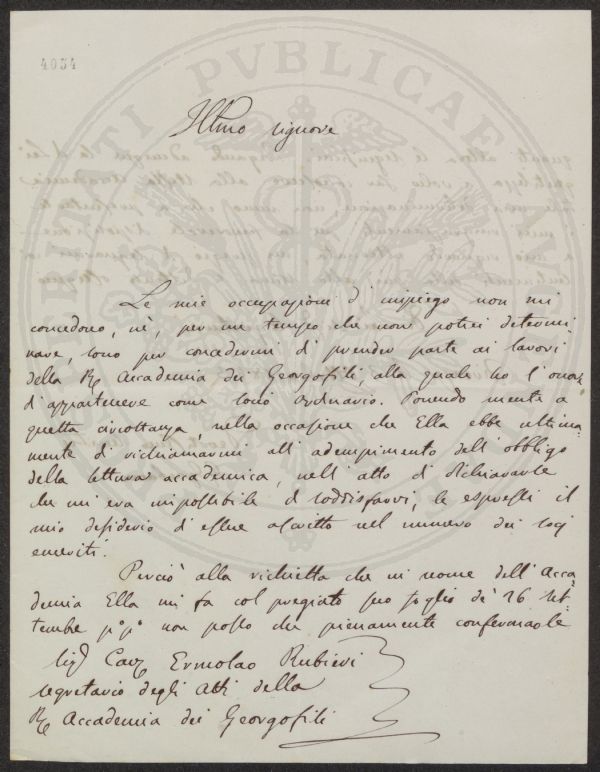 4034
PROSPERITATI PVBLICAE AVGENDAE
Illmo signore
Le mie occupazioni d'impiego non mi
concedono, nè, per un tempo che non potrei determi
nare, sono per concedermi di prender parte ai lavori
della R. Accademia dei Georgofili, alla quale ho l'onore
d'appartenere come socio ordinario. Ponendo mente a
questa circostanza, nella occasione che Ella ebbe ultima-
mente di richiamarmi all'adempimento dell'obbligo
della lettura accademica, nell'atto di dichiararle
che mi era impossibile di soddisfarvi, le espressi il
mio desiderio d'essere ascritto nel numero dei socj
emeriti.
Perciò alla richiesta che in nome dell'Acca-
demia Ella mi fa col pregiato suo foglio de' 26 set-
tembre p.o p.o non posso che pienamente confermarle
Sig. Cav. Ermolao Rubieri
segretario degli Atti della
R. Accademia dei Georgofili